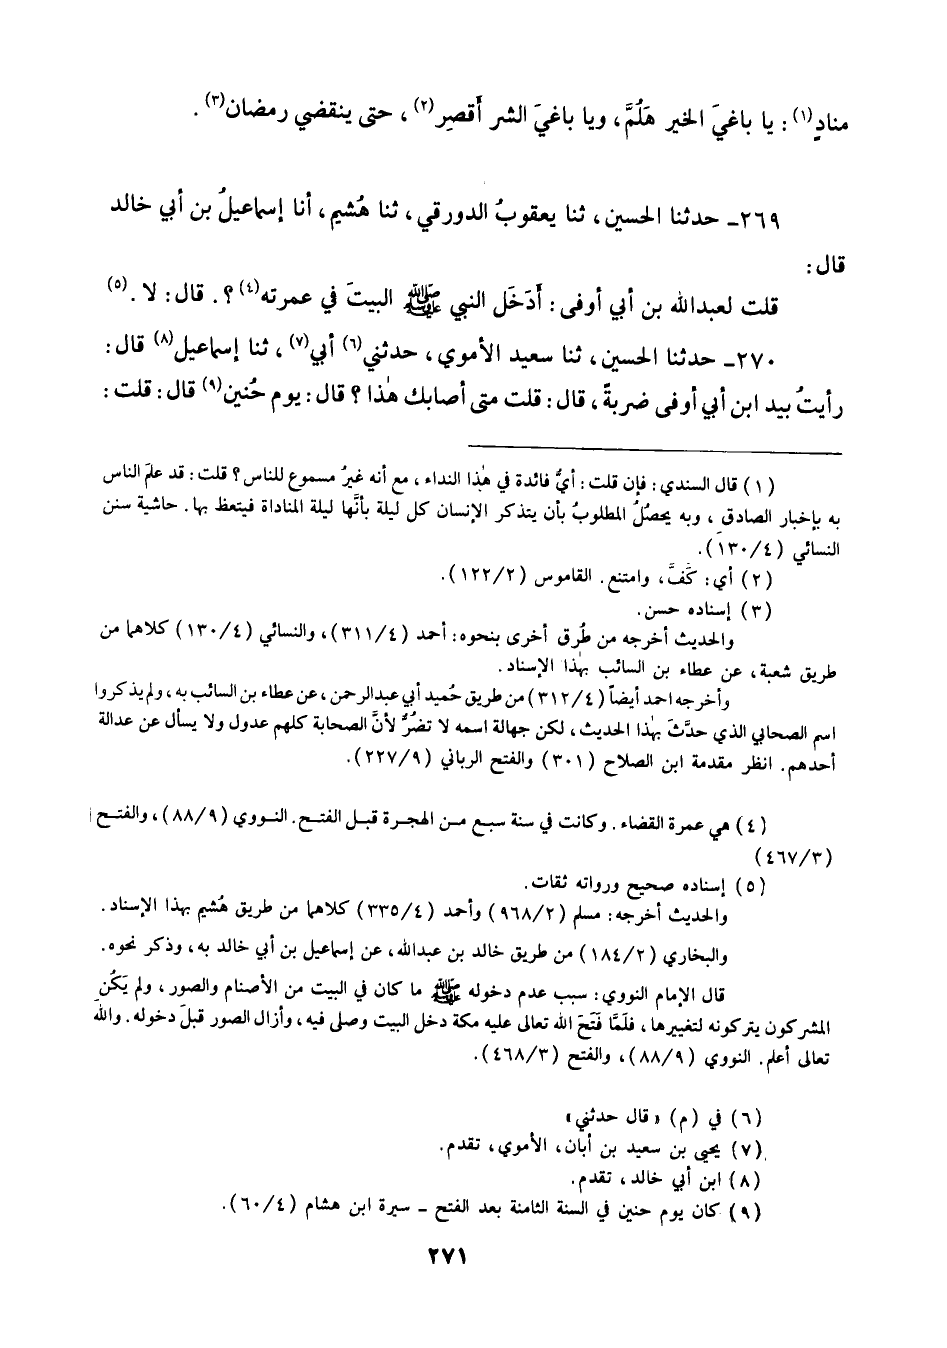 منادٍ(١): يا باغيَ الخير هَلُمَّ، ويا باغيَ الشر أَقصِر(٢)، حتى ينقضي رمضان(٣).
٢٦٩ـ حدثنا الحسين، ثنا يعقوبُ الدورقي، ثنا هُشيم، أنا إسماعيلُ بن أبي خالد
قال:
قلت لعبدالله بن أبي أوفى: أَدَخَل النبي ﷺ البيتَ في عمرته(٤)؟. قال: لا.(٥)
٢٧٠ـ حدثنا الحسين، ثنا سعيد الأموي، حدثني(٦) أبي(٧)، ثنا إسماعيل(٨) قال:
رأيتُ بيد ابن أبي أوفى ضربةً، قال: قلت متى أصابك هٰذا؟ قال: يوم حُنين(٩) قال: قلت:
(١) قال السندي: فإن قلت: أيُّ فائدة في هٰذا النداء، مع أنه غيرُ مسموع للناس؟ قلت: قد علمَ الناس
به بإخبار الصادق، وبه يحصُلُ المطلوبُ بأن يتذكر الإنسان كل ليلة بأنَّها ليلة المناداة فيتعظ بها. حاشية سنن
النسائي (١٣٠/٤).
(٢) أي: كَفَّ، وامتنع. القاموس (١٢٢/٢).
(٣) إسناده حسن.
والحديث أخرجه من طُرق أخرى بنحوه: أحمد (٣١١/٤)، والنسائي (١٣٠/٤) كلاهما من
طريق شعبة، عن عطاء بن السائب بهٰذا الإسناد.
وأخرجه احمد أيضاً (٣١٢/٤) من طريق حُميد أبي عبدالرحمن، عن عطاء بن السائب به، ولم يذكروا
اسم الصحابي الذي حدَّثَ بهٰذا الحديث، لكن جهالة اسمه لا تضُرُّ لأنَّ الصحابة كلهم عدول ولا يسأل عن عدالة
أحدهم. انظر مقدمة ابن الصلاح (٣٠١) والفتح الرباني (٢٢٧/٩).
(٤) هي عمرة القضاء. وكانت في سنة سبع من الهجرة قبل الفتح. النووي (٨٨/٩)، والفتح
(٤٦٧/٣)
(٥) إسناده صحيح ورواته ثقات.
والحديث أخرجه: مسلم (٩٦٨/٢) وأحمد (٣٣٥/٤) كلاهما من طريق هُشيم بهذا الإسناد.
والبخاري (١٨٤/٢) من طريق خالد بن عبدالله، عن إسماعيل بن أبي خالد به، وذكر نحوه.
قال الإمام النووي: سبب عدم دخوله ﷺ ما كان في البيت من الأصنام والصور، ولم يَكُن
المشركون يتركونه لتغييرها، فلَمَّا فَتَحَ الله تعالى عليه مكة دخل البيت وصلى فيه، وأزال الصور قبلَ دخوله. والله
تعالى أعلم. النووي (٨٨/٩)، والفتح (٤٦٨/٣).
(٦) في (م) «قال حدثني»
(٧) يحيى بن سعيد بن أبان، الأموي، تقدم.
(٨) ابن أبي خالد، تقدم.
(٩) كان يوم حنين في السنة الثامنة بعد الفتح ـ سيرة ابن هشام (٦٠/٤).
٢٧١